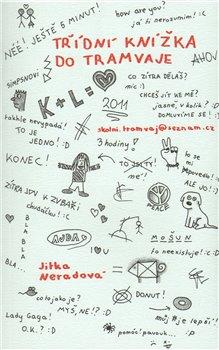 NÉÉ! JEŠTĚ 5 MINUT!
how are you?
já ti nerozumím! :(
TŘÍDNÍ KNÍŽKA
DO TRAMVAJE
AHOJ
SIMPSNOVI
K + L =
CO ZÍTRA DĚLÁŠ?
nic :)
CHCEŠ JÍT KE MĚ?
jasně, v kolik?
DOMLUVÍME SE! :)
2011
skolni.tramvaj@seznam.cz
takhle nevypadá!
TO JE
JEDNO! :D
5 hodiny!
KONEC!
TO JSI TY!
ne!
PEACE
to se mi
ALE JO! :)
ZÍTRA JDU K ZUBAŘI
chudáčku! :(
BLA
BLA
BLA
BLA...
NUDA!
U
MOŠUN
to neexistuje! :(
Jitka
Neradová
co to jako je?
MYŠ NE!? :D
DONUT!
Lady Gaga!
O.K.? :D
pomóc! pavouk...
můj je lepší!